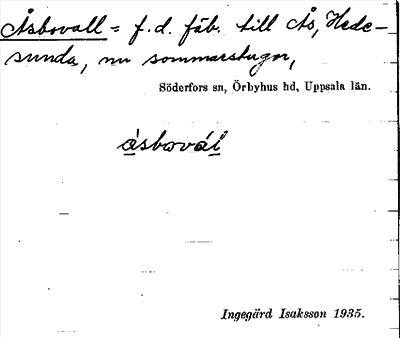 Åsbovall = f.d. fäb. till Ås, Hede-
sunda, nu sommarstugor,
Söderfors sn, Örbyhus hd, Uppsala län.
Ingegärd Isaksson 1935.